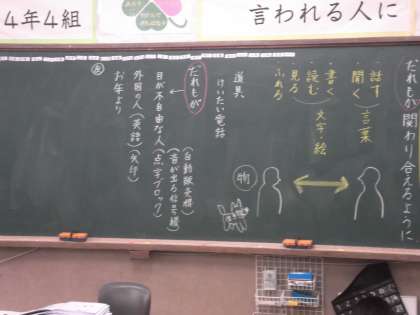 4年4組
言われる人に
だれもが関わり合えるように
・話す
・聞く
言葉
・書く
・読む
文字・絵
・見る
・ふれる
道具
けいたい電話
物
だれもが
目が不自由な人(点字ブロック)
(音が出る信号機)
(自動販売機)
外国の人(英語)(矢印)
お年より